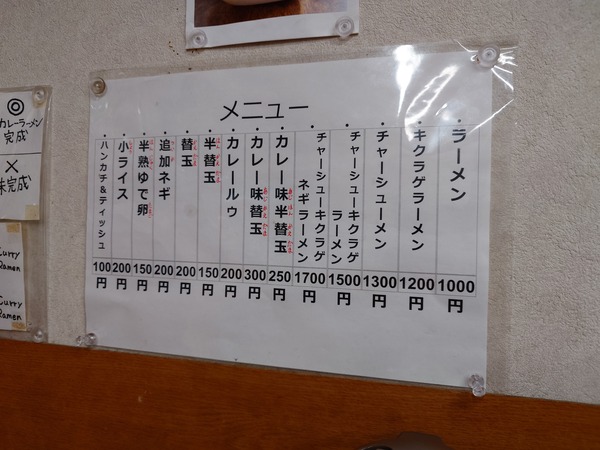 メニュー
・ラーメン 1000円
・キクラゲラーメン 1200円
・チャーシューメン 1300円
・チャーシューキクラゲ
ラーメン 1500円
・チャーシューキクラゲ
ネギラーメン 1700円
・カレー味半替玉 250円
・カレー味替玉 300円
・カレールゥ 200円
・半替玉 150円
・替玉 200円
・追加ネギ 200円
・半熟ゆで卵 150円
・小ライス 200円
・ハンカチ&ティッシュ 100円
◎
カレーラーメン
完成
×
味完成
Curry
Ramen
Curry
Ramen